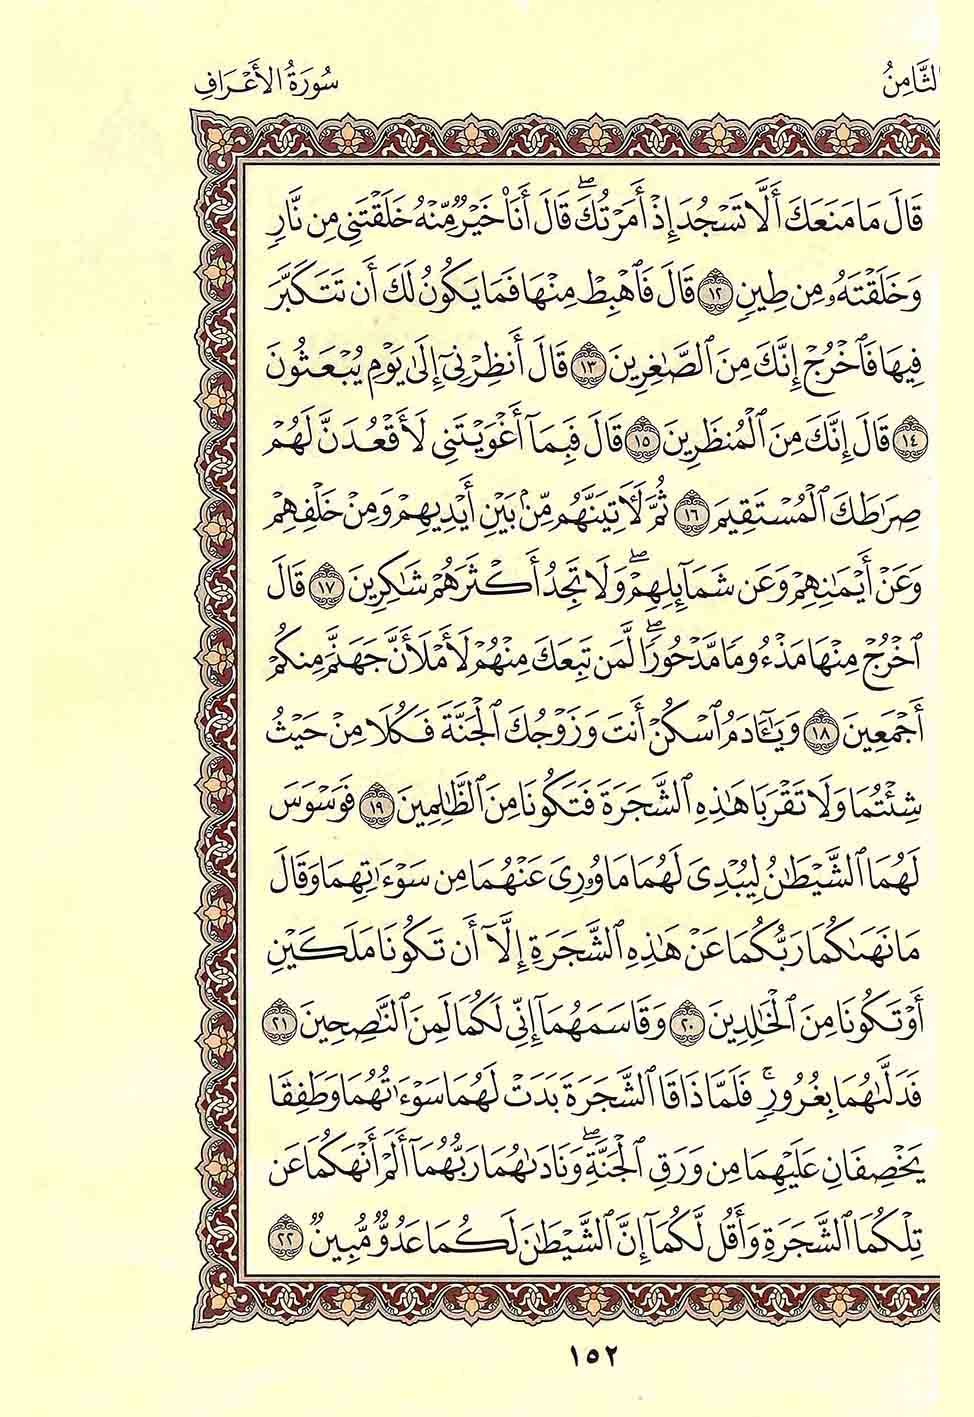 الثَّامِنُ
سُورَةُ الأَعْرَافِ
قَالَ مَا مَنَعَكَ أَلَّا تَسْجُدَ إِذْ أَمَرْتُكَ ۖ قَالَ أَنَا۠ خَيْرٌ مِّنْهُ خَلَقْتَنِى مِن نَّارٍ
وَخَلَقْتَهُۥ مِن طِينٍ ١٢ قَالَ فَٱهْبِطْ مِنْهَا فَمَا يَكُونُ لَكَ أَن تَتَكَبَّرَ
فِيهَا فَٱخْرُجْ إِنَّكَ مِنَ ٱلصَّٰغِرِينَ ١٣ قَالَ أَنظِرْنِىٓ إِلَىٰ يَوْمِ يُبْعَثُونَ
١٤ قَالَ إِنَّكَ مِنَ ٱلْمُنظَرِينَ ١٥ قَالَ فَبِمَآ أَغْوَيْتَنِى لَأَقْعُدَنَّ لَهُمْ
صِرَٰطَكَ ٱلْمُسْتَقِيمَ ١٦ ثُمَّ لَءَاتِيَنَّهُم مِّنۢ بَيْنِ أَيْدِيهِمْ وَمِنْ خَلْفِهِمْ
وَعَنْ أَيْمَٰنِهِمْ وَعَن شَمَآئِلِهِمْ ۖ وَلَا تَجِدُ أَكْثَرَهُمْ شَٰكِرِينَ ١٧ قَالَ
ٱخْرُجْ مِنْهَا مَذْءُومًا مَّدْحُورًا ۖ لَّمَن تَبِعَكَ مِنْهُمْ لَأَمْلَأَنَّ جَهَنَّمَ مِنكُمْ
أَجْمَعِينَ ١٨ وَيَٰٓـَٔادَمُ ٱسْكُنْ أَنتَ وَزَوْجُكَ ٱلْجَنَّةَ فَكُلَا مِنْ حَيْثُ
شِئْتُمَا وَلَا تَقْرَبَا هَٰذِهِ ٱلشَّجَرَةَ فَتَكُونَا مِنَ ٱلظَّٰلِمِينَ ١٩ فَوَسْوَسَ
لَهُمَا ٱلشَّيْطَٰنُ لِيُبْدِىَ لَهُمَا مَا وُۥرِىَ عَنْهُمَا مِن سَوْءَٰتِهِمَا وَقَالَ
مَا نَهَىٰكُمَا رَبُّكُمَا عَنْ هَٰذِهِ ٱلشَّجَرَةِ إِلَّآ أَن تَكُونَا مَلَكَيْنِ
أَوْ تَكُونَا مِنَ ٱلْخَٰلِدِينَ ٢٠ وَقَاسَمَهُمَآ إِنِّى لَكُمَا لَمِنَ ٱلنَّٰصِحِينَ ٢١
فَدَلَّىٰهُمَا بِغُرُورٍ ۚ فَلَمَّا ذَاقَا ٱلشَّجَرَةَ بَدَتْ لَهُمَا سَوْءَٰتُهُمَا وَطَفِقَا
يَخْصِفَانِ عَلَيْهِمَا مِن وَرَقِ ٱلْجَنَّةِ ۖ وَنَادَىٰهُمَا رَبُّهُمَآ أَلَمْ أَنْهَكُمَا عَن
تِلْكُمَا ٱلشَّجَرَةِ وَأَقُل لَّكُمَآ إِنَّ ٱلشَّيْطَٰنَ لَكُمَا عَدُوٌّ مُّبِينٌ ٢٢
١٥٢